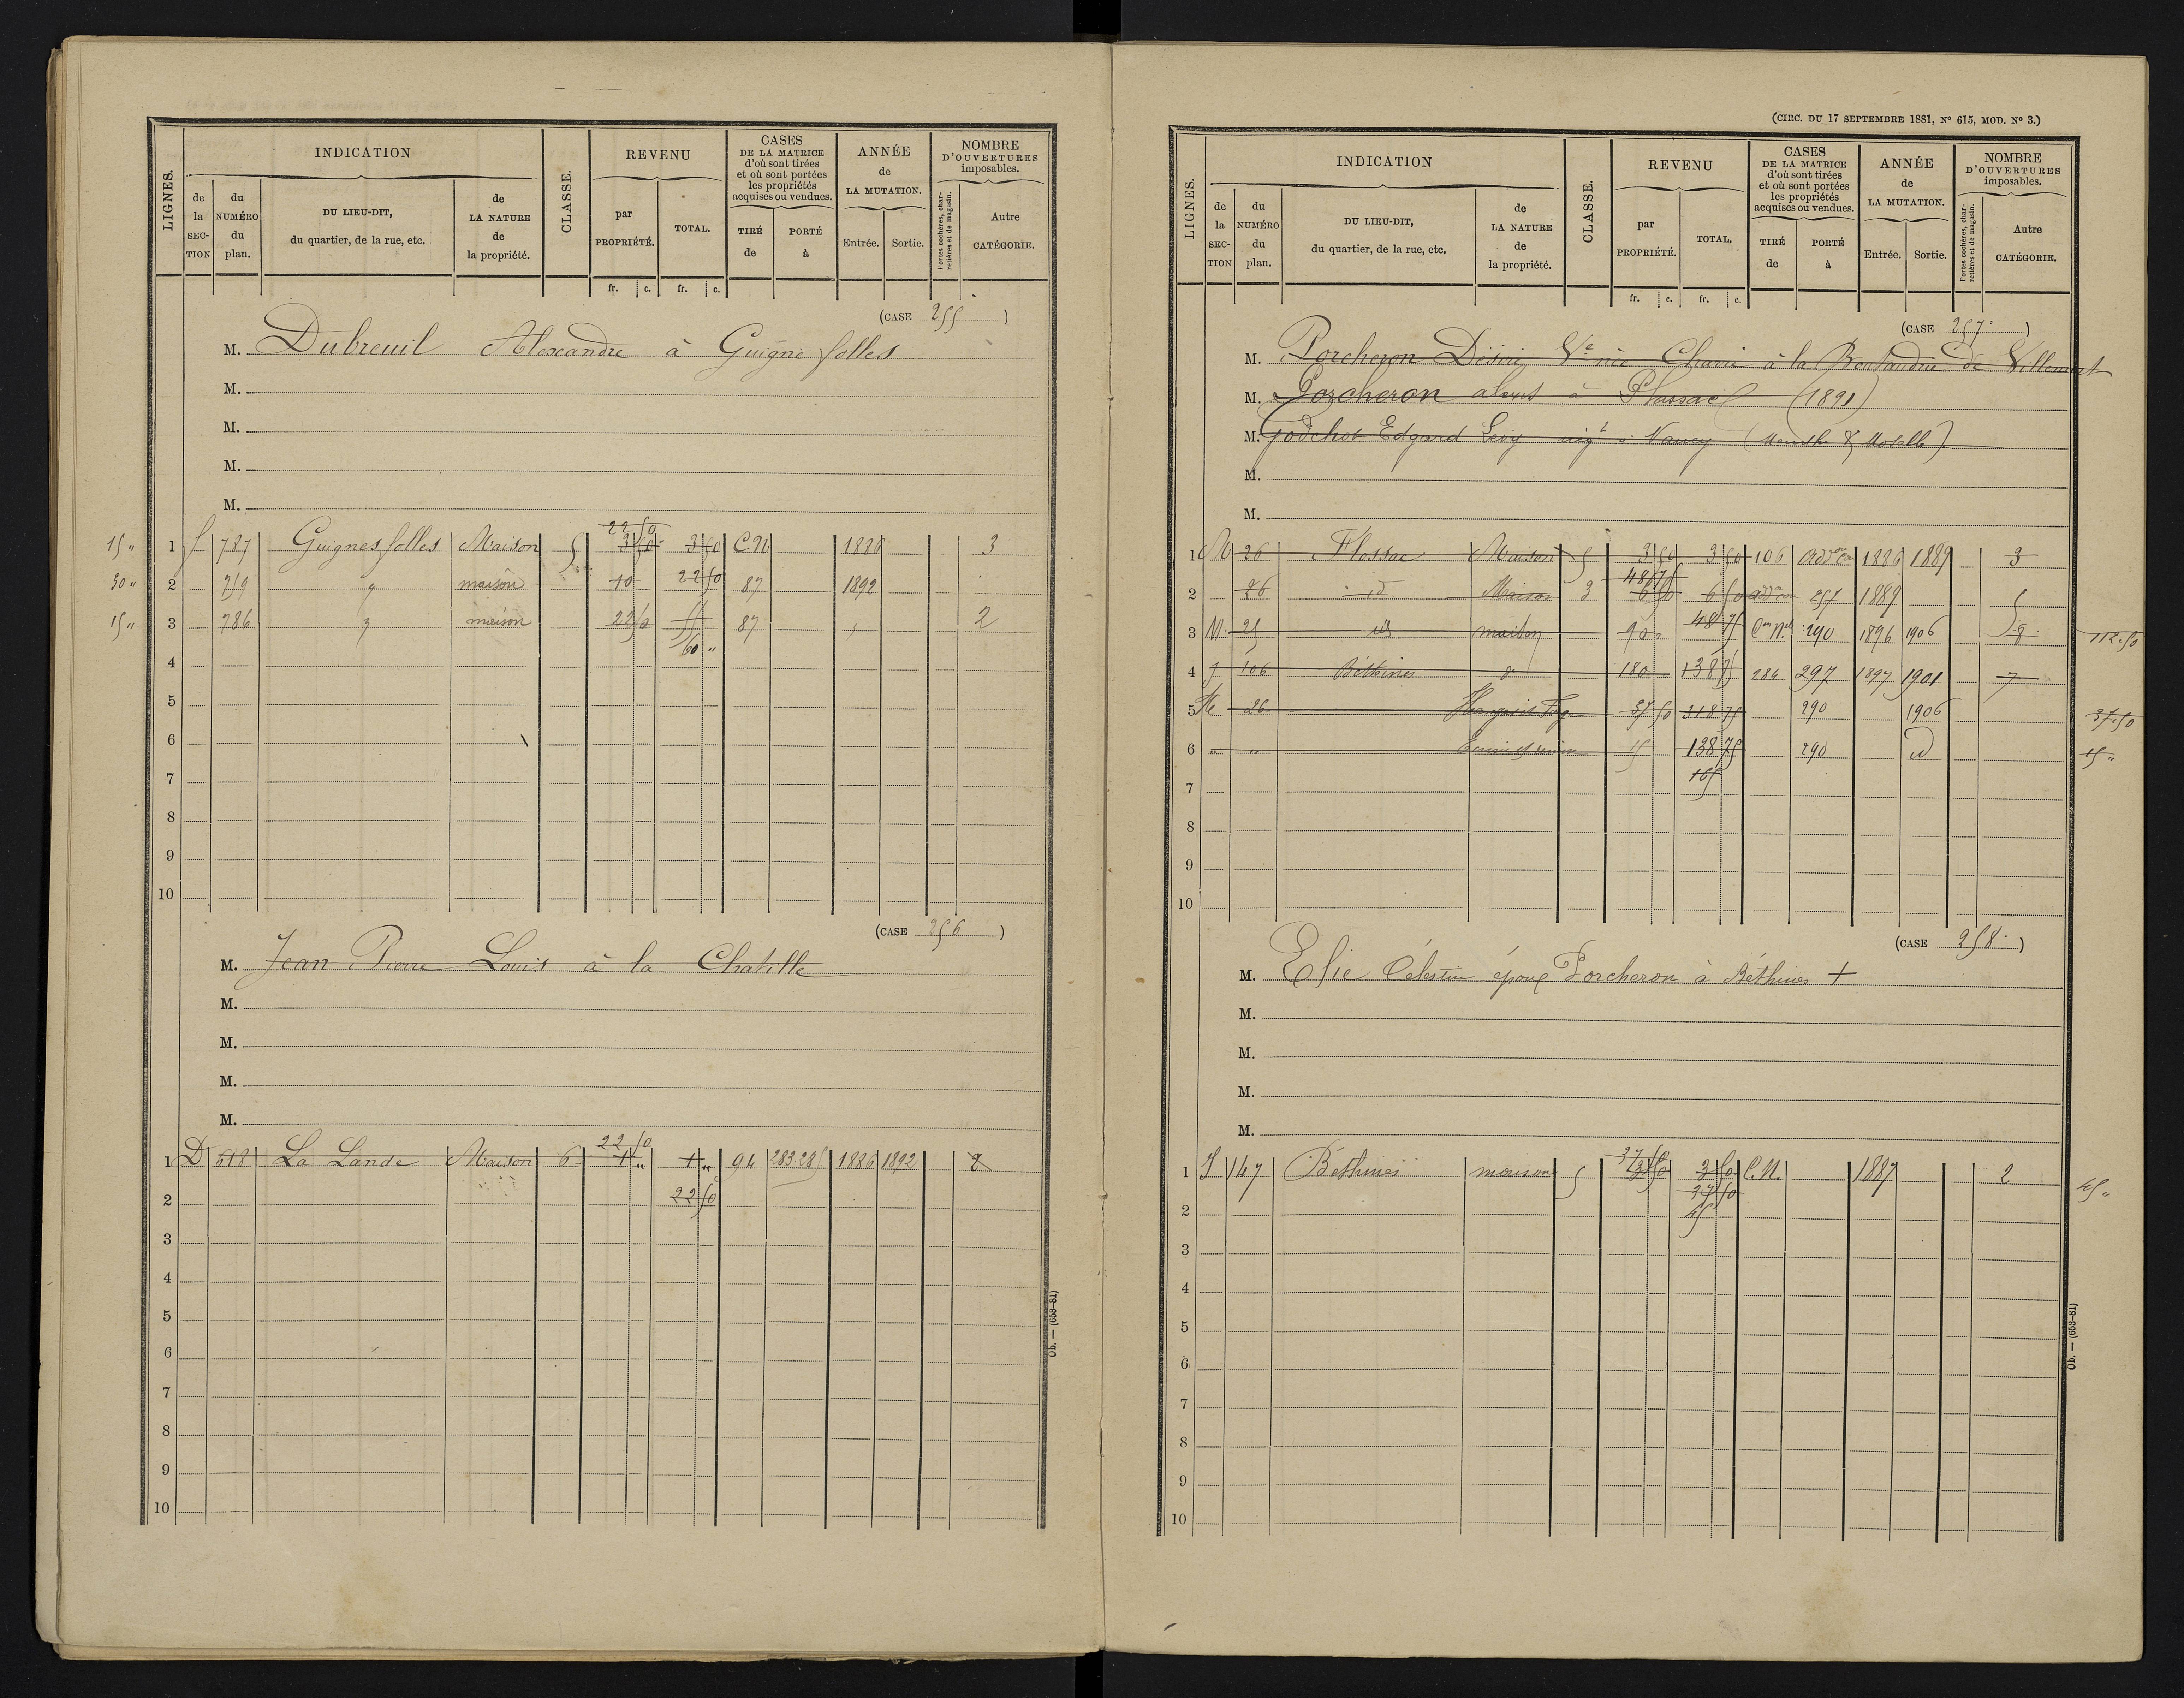 LIGNES.
INDICATION
de la SECTION
du NUMÉRO du plan.
DU LIEU-DIT, du quartier, de la rue, etc.
de LA NATURE de la propriété.
CLASSE.
REVENU
par PROPRIÉTÉ.
TOTAL.
fr. c. fr. c.
CASES DE LA MATRICE d'où sont tirées et où sont portées les propriétés acquises ou vendues.
TIRÉ de
PORTÉ à
ANNÉE de LA MUTATION.
Entrée. Sortie.
NOMBRE D'OUVERTURES imposables.
Portes cochères, charretières et de magasin.
Autre CATÉGORIE.
(CASE 255)
M. Dubreuil Alexandre à Guigne folles
M.
M.
M.
M.
15 " 1 f 787 Guignes folles Maison 5 22 50 3 50 3 50 C.N 1886 3
30 " 2 259 " maison 10 22 50 87 1892
15 " 3 786 " maison 22 50 55 87 " 2
4 60 "
5
6
7
8
9
10
(CASE 256)
M. Jean Pierre Louis à la Chatille
M.
M.
M.
M.
1 D 618 La Lande Maison 6 22 50 1 " 1 " 94 283.285 1886 1892 2
2 22 50
3
4
5
6
7
8
9
10
Ob. — (653-81)
(CIRC. DU 17 SEPTEMBRE 1881, Nº 615, MOD. Nº 3.)
LIGNES.
INDICATION
de la SECTION
du NUMÉRO du plan.
DU LIEU-DIT, du quartier, de la rue, etc.
de LA NATURE de la propriété.
CLASSE.
REVENU
par PROPRIÉTÉ.
TOTAL.
fr. c. fr. c.
CASES DE LA MATRICE d'où sont tirées et où sont portées les propriétés acquises ou vendues.
TIRÉ de
PORTÉ à
ANNÉE de LA MUTATION.
Entrée. Sortie.
NOMBRE D'OUVERTURES imposables.
Portes cochères, charretières et de magasin.
Autre CATÉGORIE.
(CASE 257)
M. Porcheron Désiré Ve née à la de Villemort
M. Porcheron alexis à Plassac (1891)
M. Godchot Edgard Levy nigt à Nancy (Meurthe & Moselle)
M.
M.
1 M 26 Maison 5 3 50 3 50 106 1886 1889 3
2 26 id Maison 3 48 75 6 50 6 50 257 1889 5
3 M 25 id maison 90 48 75 290 1896 1906 8 112.50
4 J 106 Béthines d 180 138 75 284 297 1897 1901 7
5 26 Hangar et 37 50 318 75 290 1906 37.50
6 " " 15 138 75 290 id 15 "
7 165
8
9
10
(CASE 258)
M. Elie Célestin époux Porcheron à Béthines +
M.
M.
M.
M.
1 J 147 Béthines maison 5 37 50 3 50 3 50 C.N. 1887 2 45 "
2 37 50 45
3
4
5
6
7
8
9
10
Ob. — (653-81)